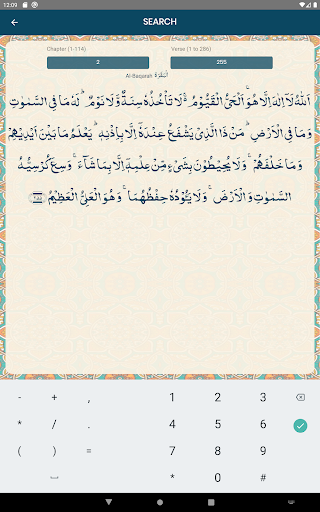 12:09
SEARCH
Chapter (1-114) Verse (1 to 286)
2 255
Al-Baqarah البَقَرَة
اَللّٰهُ لَاۤ اِلٰهَ اِلَّا هُوَۚ اَلْحَیُّ الْقَیُّوْمُ ۚ۬ لَا تَاْخُذُهٗ سِنَةٌ وَّلَا نَوْمٌ ؕ لَهٗ مَا فِی السَّمٰوٰتِ
وَمَا فِی الْاَرْضِ ؕ مَنْ ذَا الَّذِیْ یَشْفَعُ عِنْدَهٗۤ اِلَّا بِاِذْنِهٖ ؕ یَعْلَمُ مَا بَیْنَ اَیْدِیْهِمْ
وَمَا خَلْفَهُمْ ۚ وَلَا یُحِیْطُوْنَ بِشَیْءٍ مِّنْ عِلْمِهٖۤ اِلَّا بِمَا شَآءَ ۚ وَسِعَ كُرْسِیُّهُ
السَّمٰوٰتِ وَالْاَرْضَ ۚ وَلَا یَـُٔوْدُهٗ حِفْظُهُمَا ۚ وَهُوَ الْعَلِیُّ الْعَظِیْمُ ۝۲۵۵
- + , 1 2 3
* / . 4 5 6
( ) = 7 8 9
* 0 #